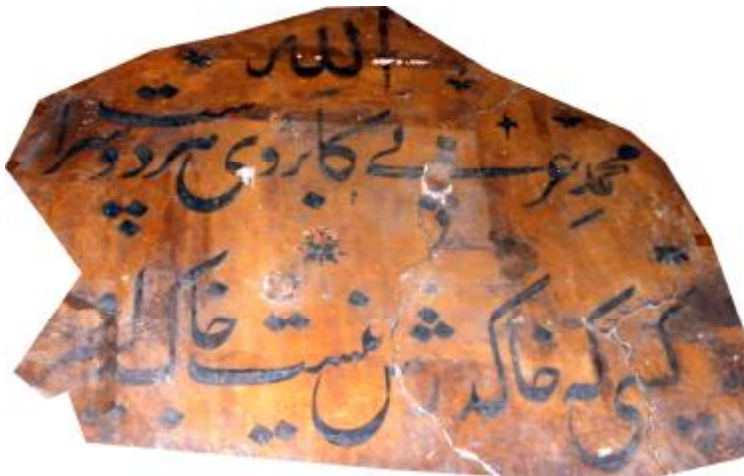 الله
محمد عربی کابروی هر دو سراست
کسی که خاک درش نیست خاک بر سر